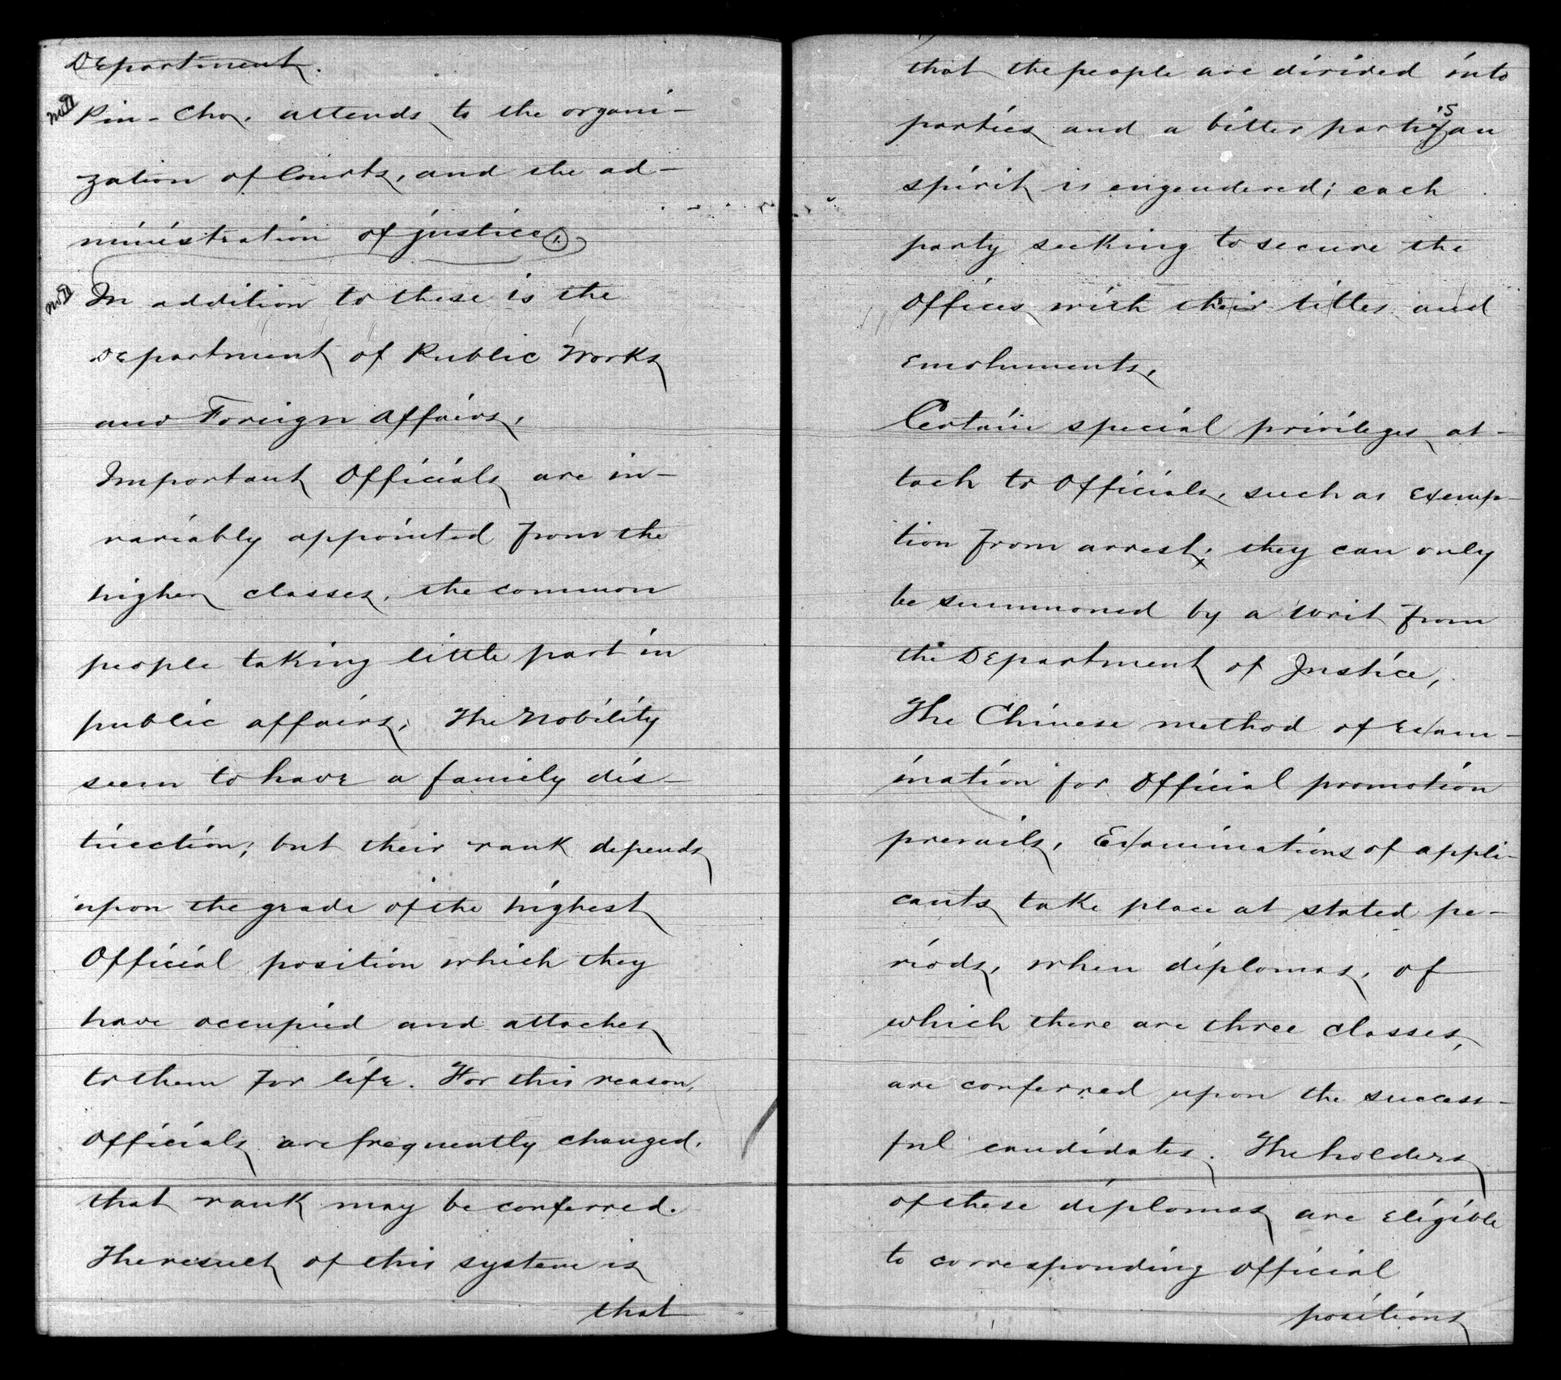 Department.
No. II Pin-Cho, attends to the organi-
zation of Courts, and the ad-
ministration of justice.
No. II In addition to these is the
Department of Public Works
and Foreign Affairs.
Important Officials are in-
variably appointed from the
higher classes, the common
people taking little part in
public affairs. The Nobility
seem to have a family dis-
tinction; but their rank depends
upon the grade of the highest
Official position which they
have occupied and attaches
to them for life. For this reason,
Officials are frequently changed,
that rank may be conferred.
The result of this system is
that
that the people are divided into
parties and a bitter partisan
spirit is engendered; each
party seeking to secure the
Offices with their titles and
Emoluments.
Certain special privileges at-
tach to Officials, such as exemp-
tion from arrest; they can only
be summoned by a writ from
the Department of Justice.
The Chinese method of exam-
ination for Official promotion
prevails. Examinations of appli-
cants take place at stated pe-
riods, when diplomas, of
which there are three classes,
are conferred upon the success-
ful candidates. The holders
of these diplomas are eligible
to corresponding official
positions